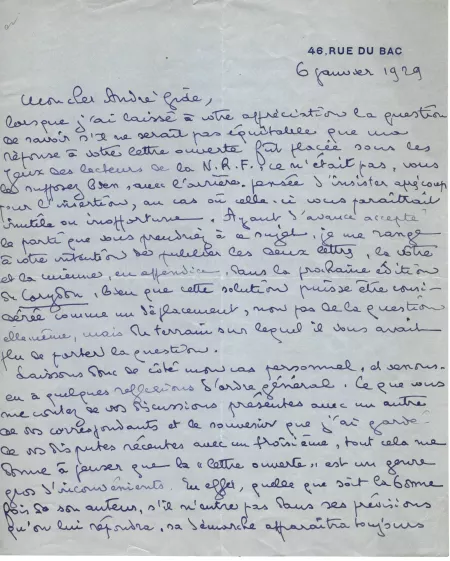 46, RUE DU BAC
6 janvier 1929
Mon cher André Gide,
lorsque j'ai laissé à votre appréciation la question
de savoir s'il ne serait pas équitable que ma
réponse à votre lettre ouverte fût placée sous les
yeux des lecteurs de la N.R.F., ce n'était pas, vous
le supposez bien, avec l'arrière-pensée d'insister après coup
pour l'insertion, au cas où celle-ci vous paraîtrait
inutile ou inopportune. Ayant d'avance accepté
le parti que vous prendriez à ce sujet, je me range
à votre intention de publier les deux lettres, la vôtre
et la mienne, en appendice, dans la prochaine édition
de Corydon, bien que cette solution puisse être consi-
dérée comme un déplacement, non pas de la question
elle-même, mais du terrain sur lequel il vous avait
plu de porter la question.
Laissons donc de côté mon cas personnel, et venons-
en à quelques réflexions d'ordre général. Ce que vous
me contez de vos discussions présentes avec un autre
de vos correspondants et le souvenir que j'ai gardé
de vos disputes récentes avec un troisième, tout cela me
donne à penser que la "lettre ouverte" est un genre
gros d'inconvénients. En effet, quelle que soit la bonne
foi de son auteur, s'il n'entre pas dans ses prévisions
qu'on lui réponde, sa démarche apparaîtra toujours